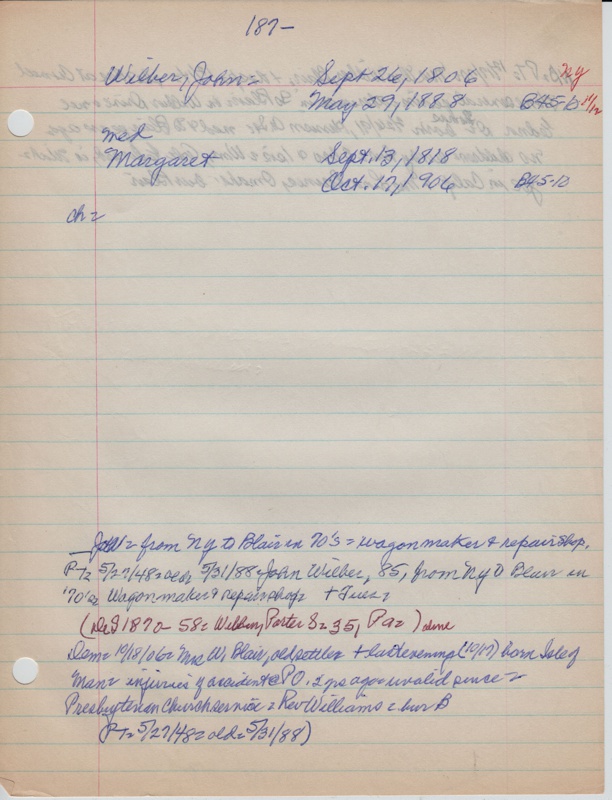 187-
Wilber, John = Sept 26, 1806 Ny
May 29, 1888 B45-D
med
Margaret Sept. 13, 1818
Oct. 17, 1906 B45-10
ch =
John = from Ny to Blair in 70's = wagonmaker & repair shop.
P-T= 5/27/48 = old 5/31/88 John Wilber, 85, from Ny to Blair in
'70's Wagonmaker & repair shop = + Tues =
(DeS 1870 - 58 = Wilber, Porter S = 35, Pa =)
Dem = 10/18/06 = Mrs W, Blair, old settler + Tues evening (10/17) born Isle of
Man = injuries of accident @ PO, 2 yrs ago = invalid since =
Presbyterian Church service = Rev Williams = bur B
(P-T= 5/27/48 = old = 5/31/88)